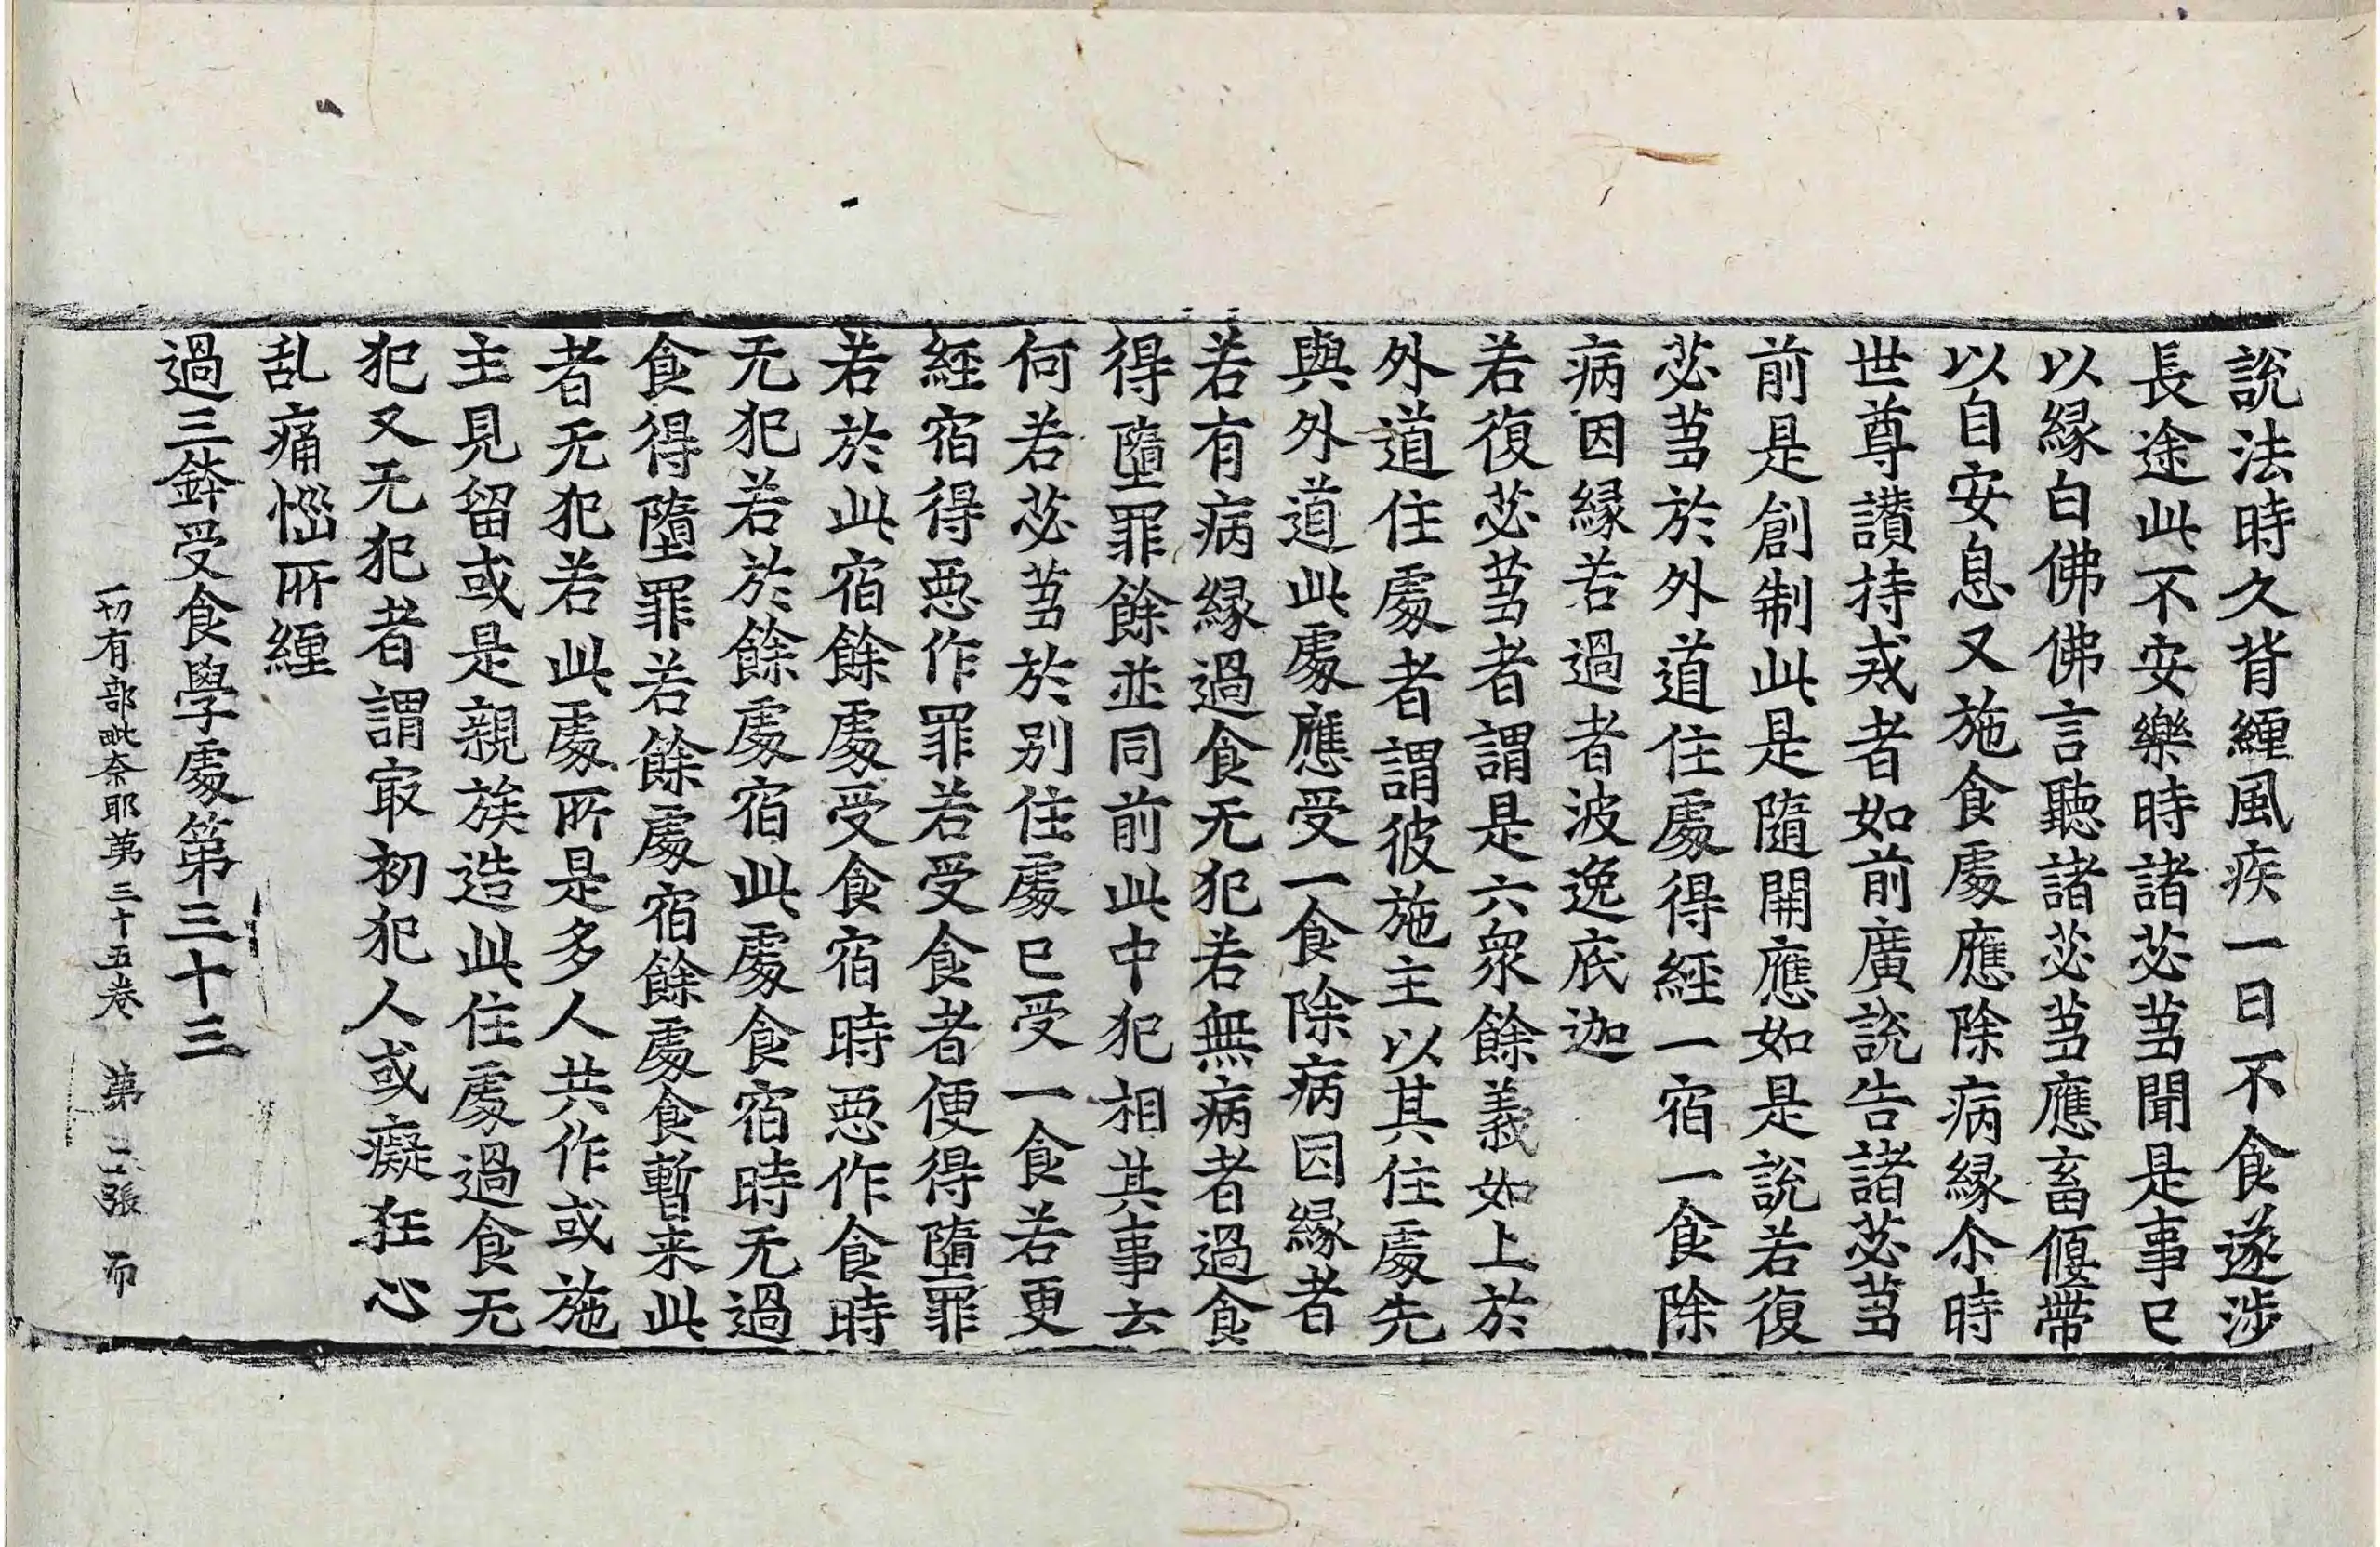 說法時久背緾風疾一日不食遂涉
長途此不安樂時諸苾芻聞是事已
以縁白佛佛言聽諸苾芻應畜偃帶
以自安息又施食處應除病縁尒時
世尊讃持戒者如前廣說告諸苾芻
前是創制此是隨開應如是說若復
苾芻於外道住處得經一宿一食除
病因縁若過者波逸底迦
若復苾芻者謂是六衆餘義如上於
外道住處者謂彼施主以其住處先
與外道此處應受一食除病因縁者
若有病縁過食无犯若無病者過食
得墮罪餘並同前此中犯相其事云
何若苾芻於別住處已受一食若更
經宿得惡作罪若受食者便得墮罪
若於此宿餘處受食宿時惡作食時
无犯若於餘處宿此處食宿時无過
食得墮罪若餘處宿餘處食暫来此
者无犯若此處所是多人共作或施
主見留或是親族造此住處過食无
犯又无犯者謂㝡初犯人或癡狂心
乱痛惱所緾
過三鉢受食學處第三十三
一切有部毗奈耶第三十五卷 第 張 而